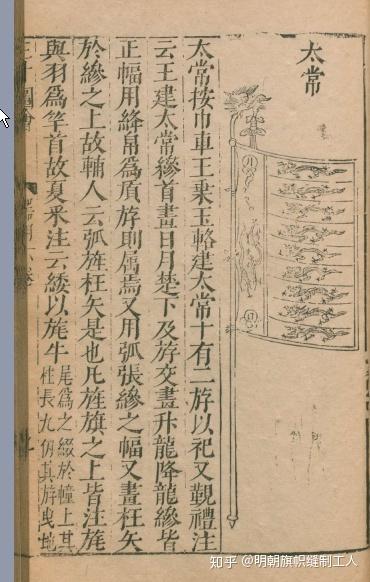 太常
太常按巾車王乗玉輅建太常十有二斿以祀又覲禮注
云王建太常縿首畫日月其下及斿交畫升龍降龍縿皆
正幅用絳帛爲質斿則屬焉又用弧張縿之幅又畫枉矢
於縿之上故輈人云弧旌枉矢是也凡旌旗之上皆注旄
與羽爲竿首故夏采注云緌以旄牛
尾爲之綴於幢上其
杠長九仞其斿曳地
知乎 @明朝旗帜缝制工人